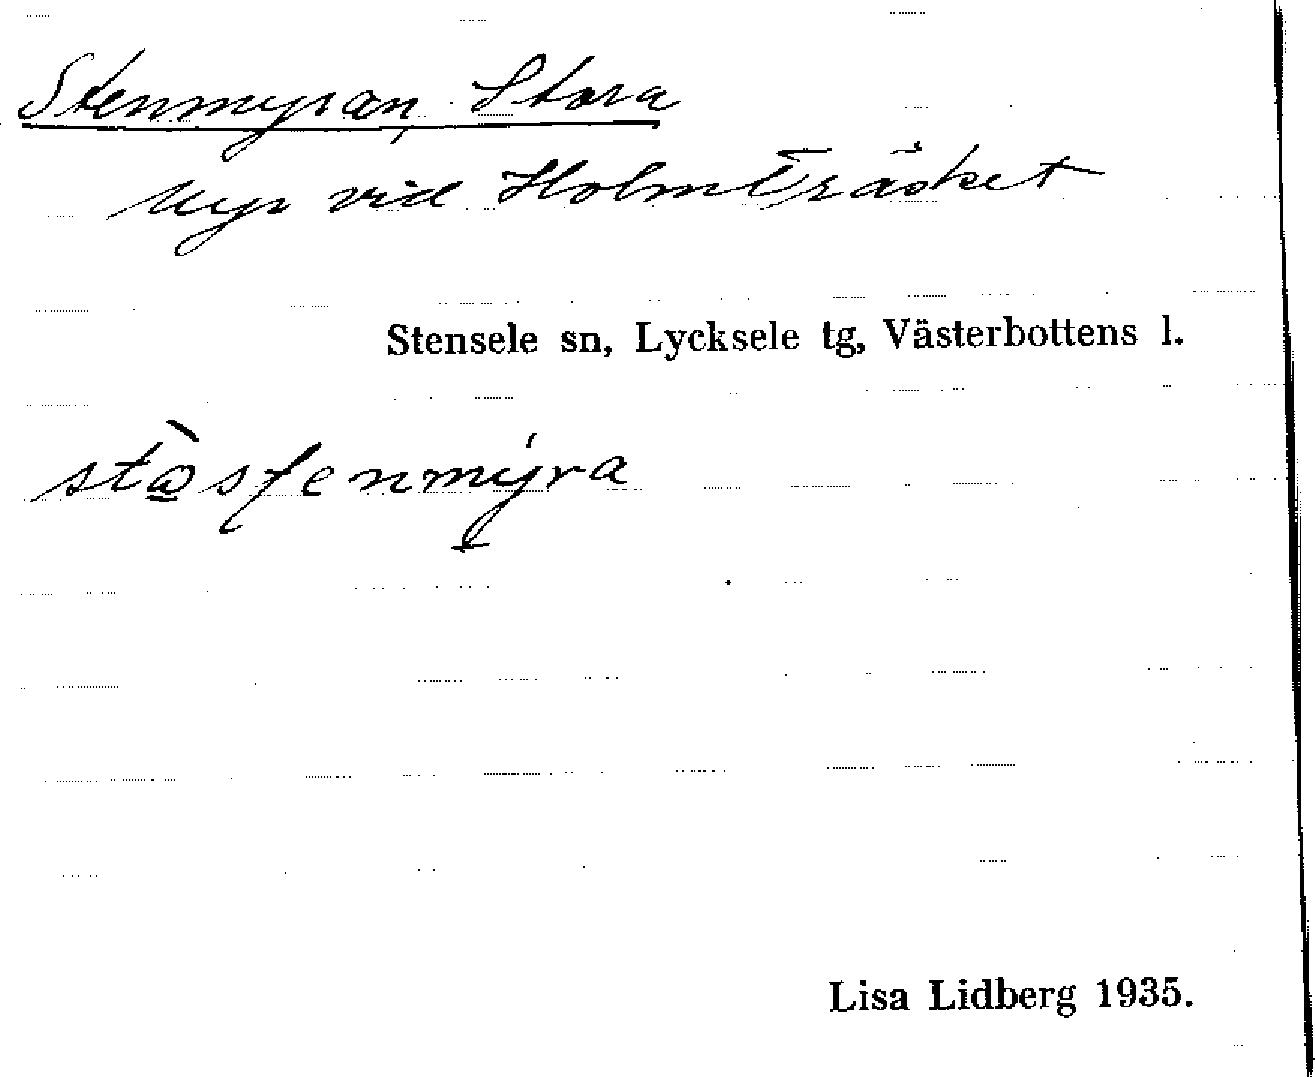 Stenmyran, Stora
Myr vid Holmträsket
Stensele sn, Lycksele tg, Västerbottens l.
Lisa Lidberg 1935.